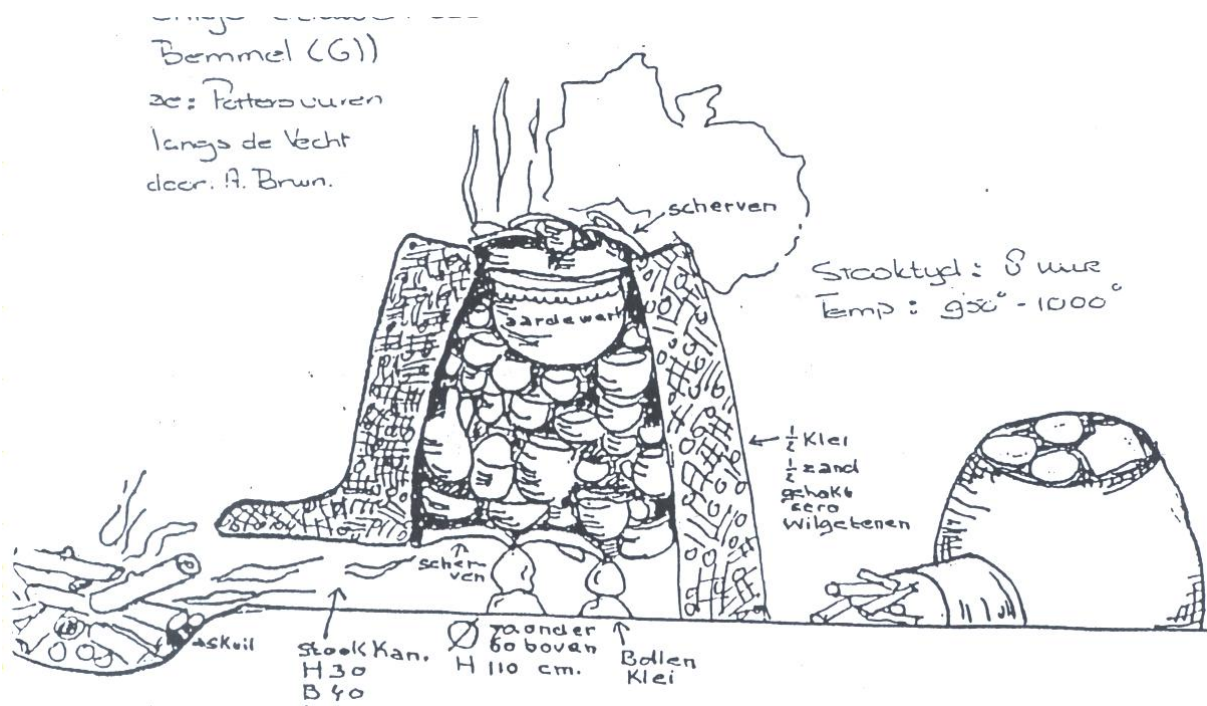 Bemmel (G))
langs de Vecht
door. A. Brun.
scherven
Stooktyd: 8 uur
Temp: 950° - 1000°
aardewerk
½ Klei
½ zand
gehakt
Wilgetenen
scher-
ven
skuil
stook Kan.
H 30
B 40
Ø 70 onder
60 boven
H 110 cm.
Bollen
Klei